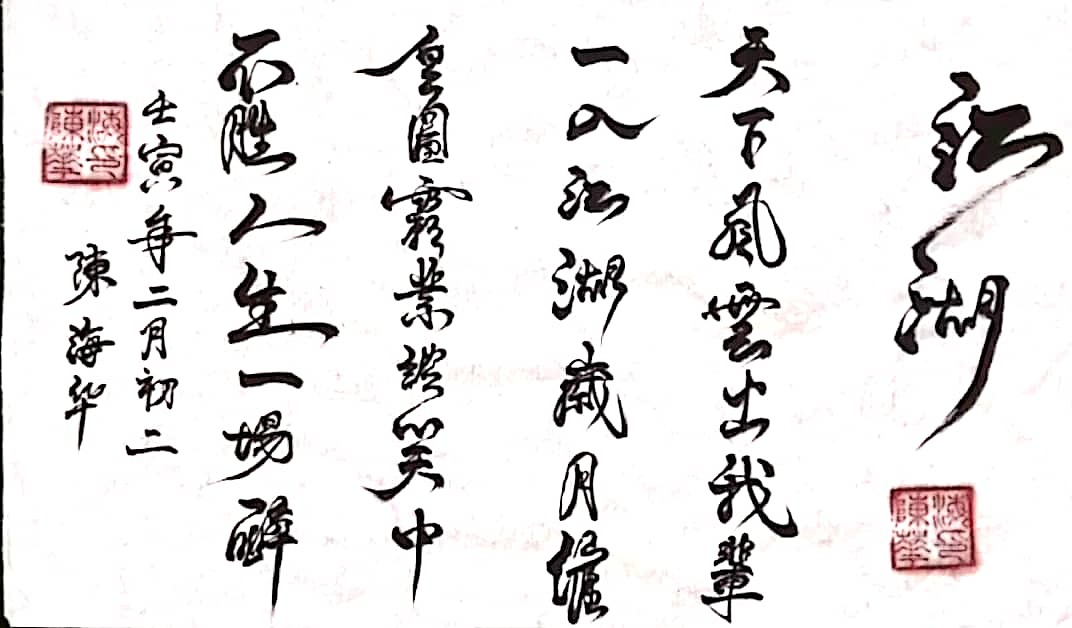 江湖
天下風雲出我輩
一入江湖歲月催
皇圖霸業談笑中
不勝人生一場醉
壬寅年二月初二
陳海华